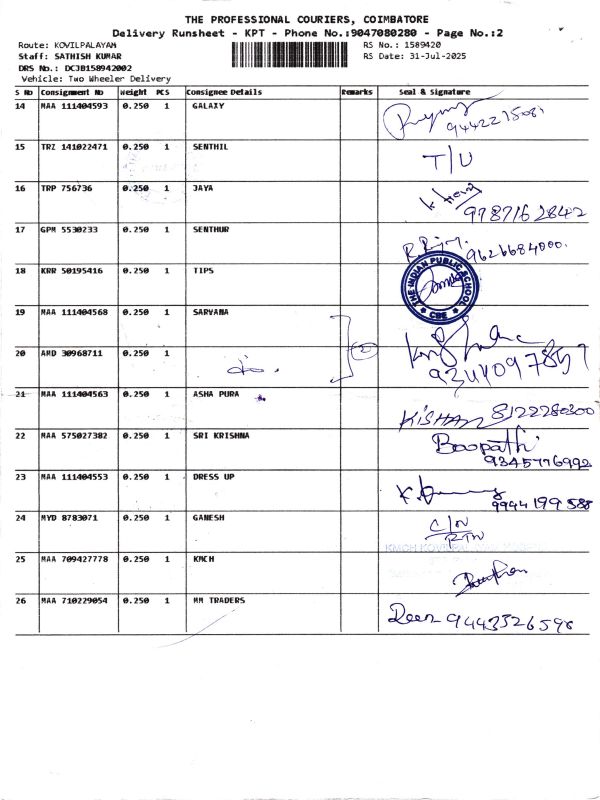 THE PROFESSIONAL COURIERS, COIMBATORE
Delivery Runsheet - KPT - Phone No.:9047080280 - Page No.:2
Route: KOVILPALAYAM RS No.: 1589420
Staff: SATHISH KUMAR RS Date: 31-Jul-2025
DRS No.: DCJB158942002
Vehicle: Two Wheeler Delivery
S No Consignment No Weight PCS Consignee Details Remarks Seal & Signature
14 MAA 111404593 0.250 1 GALAXY
15 TRZ 141022471 0.250 1 SENTHIL T/U
16 TRP 756736 0.250 1 JAYA
9787162842
17 GPM 5530233 0.250 1 SENTHUR
9626684000.
18 KRR 50195416 0.250 1 TIPS
THE INDIAN PUBLIC SCHOOL
CBE
19 MAA 111404568 0.250 1 SARVANA
20 AMD 30968711 0.250 1
21 MAA 111404563 0.250 1 ASHA PURA
KISHAN 8122280300
22 MAA 575027382 0.250 1 SRI KRISHNA Boopathi
9345776992
23 MAA 111404553 0.250 1 DRESS UP
9944 199 588
24 MYD 8783071 0.250 1 GANESH
25 MAA 709427778 0.250 1 KMCH
26 MAA 710229054 0.250 1 MM TRADERS
9443326598